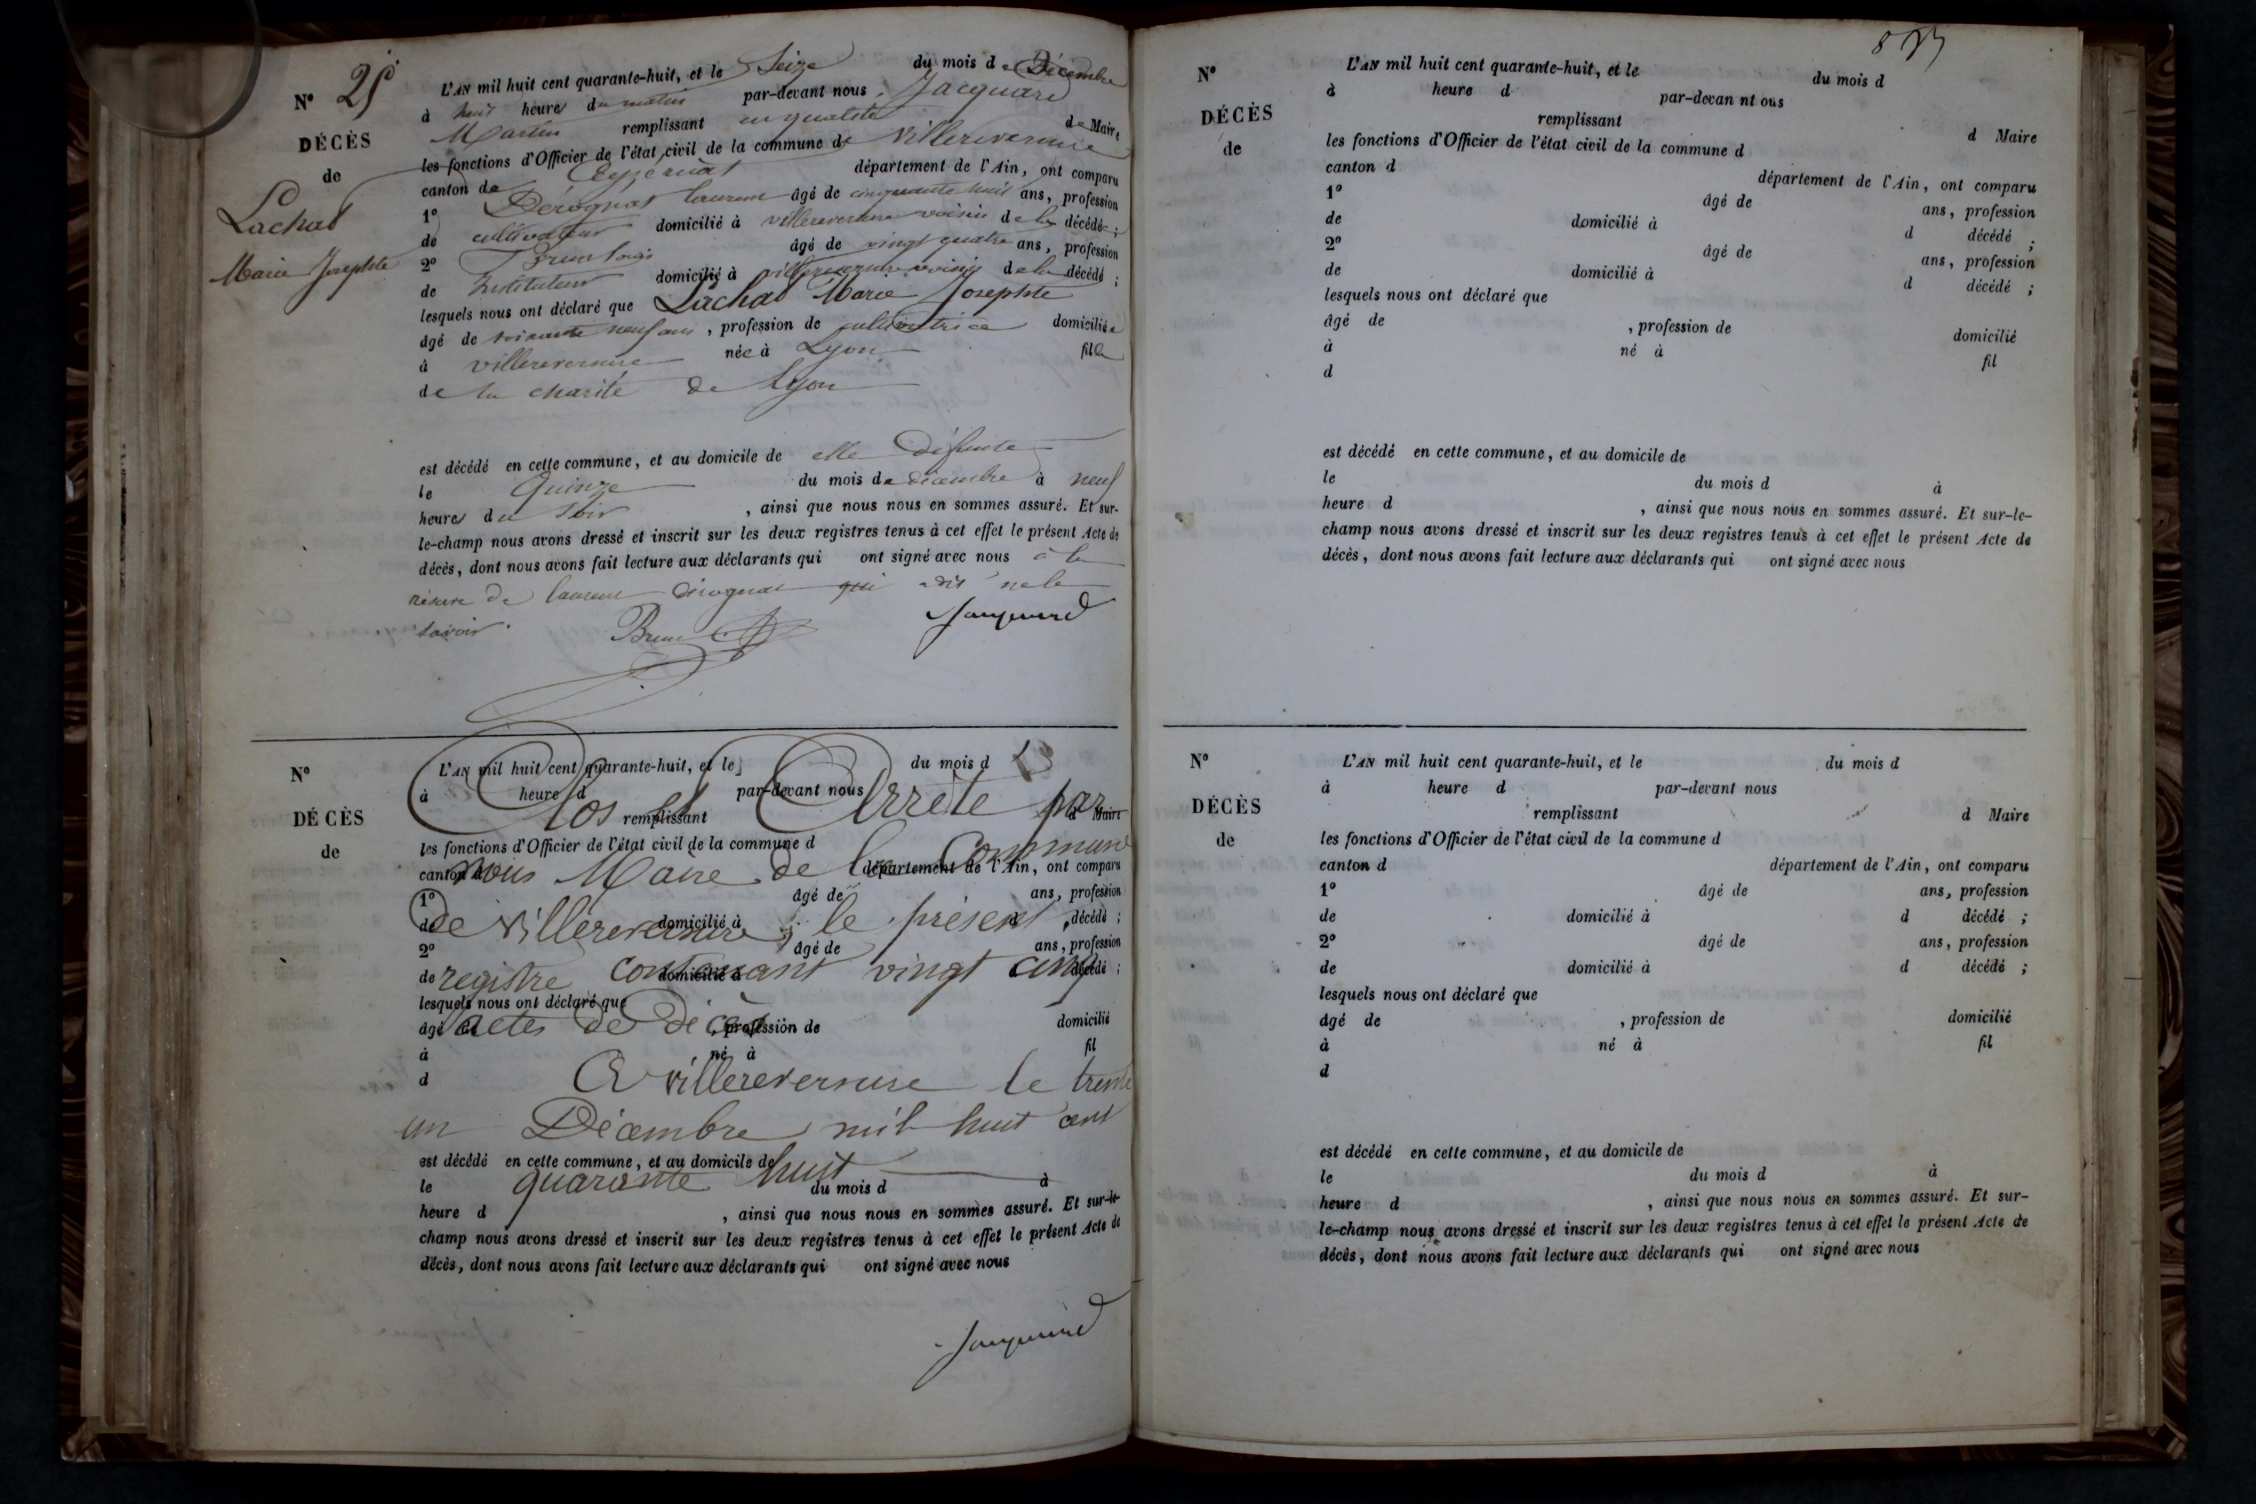 N° 25
DÉCÈS
de
Lachat
Marie Josephte
L'AN mil huit cent quarante-huit, et le Seize du mois de Décembre
à huit heures du matin par-devant nous Jacquard
Martin remplissant en qualité de Maire
les fonctions d'Officier de l'état civil de la commune de Villereversure
canton de Ceyzeriat département de l'Ain, ont comparu
1° Dérognat Laurent âgé de cinquante huit ans, profession
de cultivateur domicilié à villereversure voisin de la décédée ;
2° Brun Louis âgé de vingt quatre ans, profession
de Instituteur domicilié à villereversure voisin de la décédé ;
lesquels nous ont déclaré que Lachat Marie Josephte
âgé de soixante neuf ans, profession de cultivatrice domiciliée
à villereversure née à Lyon fille
de la charité de Lyon
est décédé en cette commune, et au domicile de elle défunte
le Quinze du mois de décembre à neuf
heures du soir, ainsi que nous nous en sommes assuré. Et sur-
le-champ nous avons dressé et inscrit sur les deux registres tenus à cet effet le présent Acte de
décès, dont nous avons fait lecture aux déclarants qui ont signé avec nous à la
réserve de laurent dérognat qui a dit ne le
savoir. Brun Jacquard
N°
DÉCÈS
de
L'AN mil huit cent quarante-huit, et le du mois d
à heure d par-devant nous
Clos et Arrêté par
remplissant d Maire
les fonctions d'Officier de l'état civil de la commune d
nous Maire de la Commune
canton d département de l'Ain, ont comparu
1° âgé de ans, profession
de Villereversure, le présent
de domicilié à d décédé ;
2° âgé de ans, profession
registre contenant vingt cinq
de domicilié à décédé ;
lesquels nous ont déclaré que
actes de Décès
âgé de , profession de domicilié
à né à fil
d
A villereversure le trente
un Décembre mil huit cent
est décédé en cette commune, et au domicile de
quarante huit
le du mois d à
heure d , ainsi que nous nous en sommes assuré. Et sur-le-
champ nous avons dressé et inscrit sur les deux registres tenus à cet effet le présent Acte de
décès, dont nous avons fait lecture aux déclarants qui ont signé avec nous
Jacquard
N°
DÉCÈS
de
L'AN mil huit cent quarante-huit, et le du mois d
à heure d par-devan nt ous
remplissant d Maire
les fonctions d'Officier de l'état civil de la commune d
canton d département de l'Ain, ont comparu
1° âgé de ans, profession
de domicilié à d décédé ;
2° âgé de ans, profession
de domicilié à d décédé ;
lesquels nous ont déclaré que
âgé de , profession de domicilié
à né à fil
d
est décédé en cette commune, et au domicile de
le du mois d à
heure d , ainsi que nous nous en sommes assuré. Et sur-le-
champ nous avons dressé et inscrit sur les deux registres tenus à cet effet le présent Acte de
décès, dont nous avons fait lecture aux déclarants qui ont signé avec nous
N°
DÉCÈS
de
L'AN mil huit cent quarante-huit, et le du mois d
à heure d par-devant nous
remplissant d Maire
les fonctions d'Officier de l'état civil de la commune d
canton d département de l'Ain, ont comparu
1° âgé de ans, profession
de domicilié à d décédé ;
2° âgé de ans, profession
de domicilié à d décédé ;
lesquels nous ont déclaré que
âgé de , profession de domicilié
à né à fil
d
est décédé en cette commune, et au domicile de
le du mois d à
heure d , ainsi que nous nous en sommes assuré. Et sur-
le-champ nous avons dressé et inscrit sur les deux registres tenus à cet effet le présent Acte de
décès, dont nous avons fait lecture aux déclarants qui ont signé avec nous